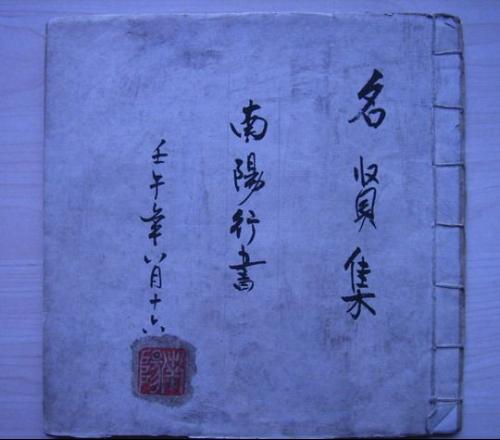 名贤集
南陽行書
壬午年八月十六
南陽